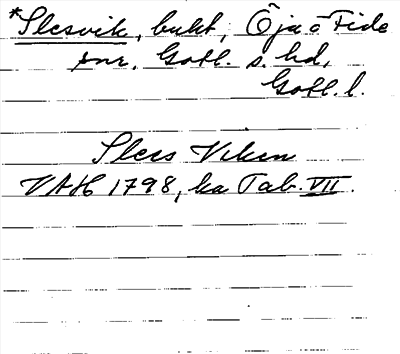 *Slesvik, bukt, Öja o Fide
snr. Gotl. s. hd,
Gotl. l.
Sless Viken
VAH 1798, ka Tab. VII.